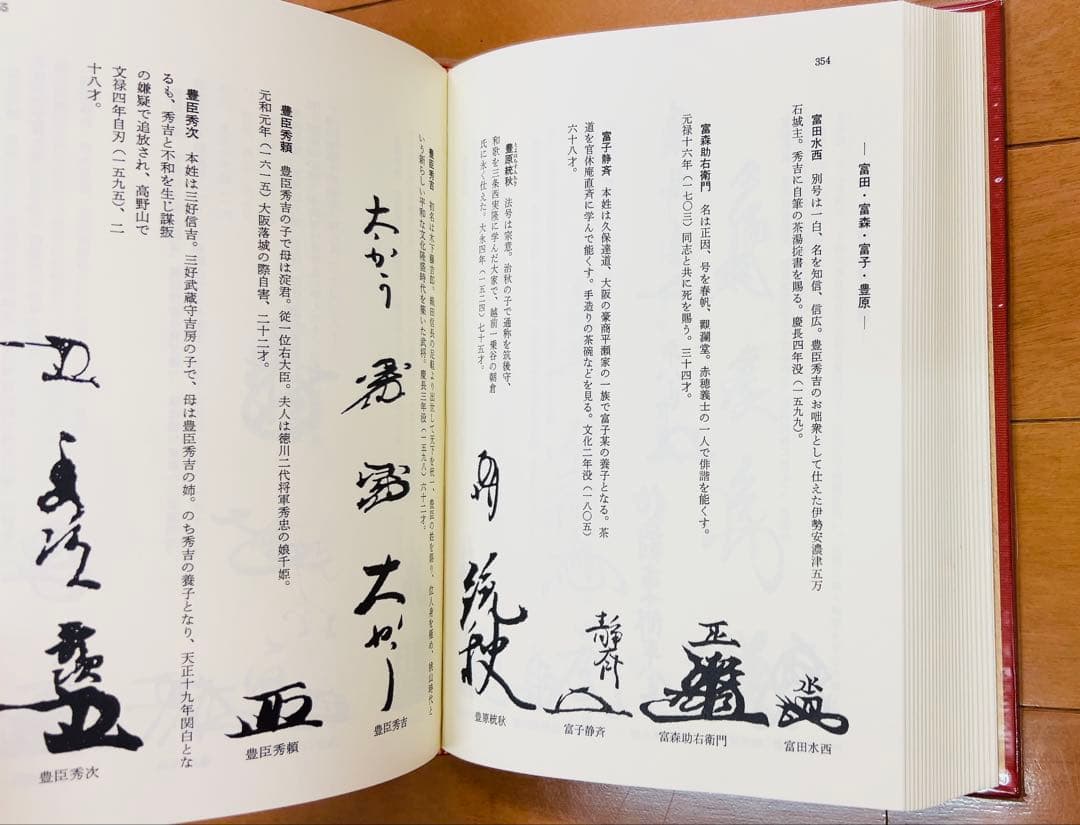 354
― 富田・富森・富子・豊原 ―
富田水西　別号は一白、名を知信、信広。豊臣秀吉のお咄衆として仕えた伊勢安濃津五万
石城主。秀吉に自筆の茶湯掟書を賜る。慶長四年没（一五九九）。
富森助右衛門　名は正因、号を春帆、觀瀾堂。赤穂義士の一人で俳諧を能くす。
元禄十六年（一七〇三）同志と共に死を賜う。三十四才。
富子静斉　本姓は久保達道、大阪の豪商平瀬家の一族で富子某の養子となる。茶
道を官休庵直斉に学んで能くす。手造りの茶碗などを見る。文化二年没（一八〇五）
六十八才。
豊原統秋　法号は宗意。治秋の子で通称を筑後守、
和歌を三条西実隆に学んだ大家で、越前一乗谷の朝倉
氏に永く仕えた。大永四年（一五二四）七十五才。
富田水西
富森助右衛門
富子静斉
豊原統秋
豊臣秀吉　初名は木下藤吉郎。織田信長の足軽より出世して天下を統一、豊臣の姓を賜り、位人身を極め、桃山時代と
いう新らしい平和な文化隆盛時代を築いた武将。慶長三年没（一五九八）六十二才。
大かう
大かう
豊臣秀吉
豊臣秀頼　豊臣秀吉の子で母は淀君。従一位右大臣。夫人は徳川二代将軍秀忠の娘千姫。
元和元年（一六一五）大阪落城の際自害、二十二才。
豊臣秀頼
豊臣秀次　本姓は三好信吉。三好武蔵守吉房の子で、母は豊臣秀吉の姉。のち秀吉の養子となり、天正十九年関白とな
るも、秀吉と不和を生じ謀叛
の嫌疑で追放され、高野山で
文禄四年自刃（一五九五）、二
十八才。
秀次
豊臣秀次